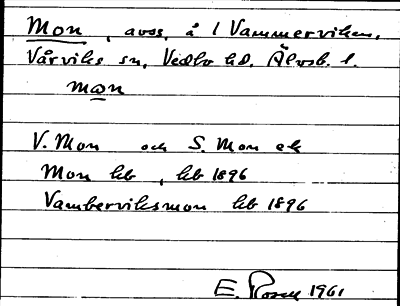 Mon, avss. å l Vammerviken,
Vårviks sn, Vedbo hd. Älvsb. l.
mon
V. Mon och S. Mon ek
Mon kb, kb 1896
Vamberviksmon kb 1896
E. Rosell 1961